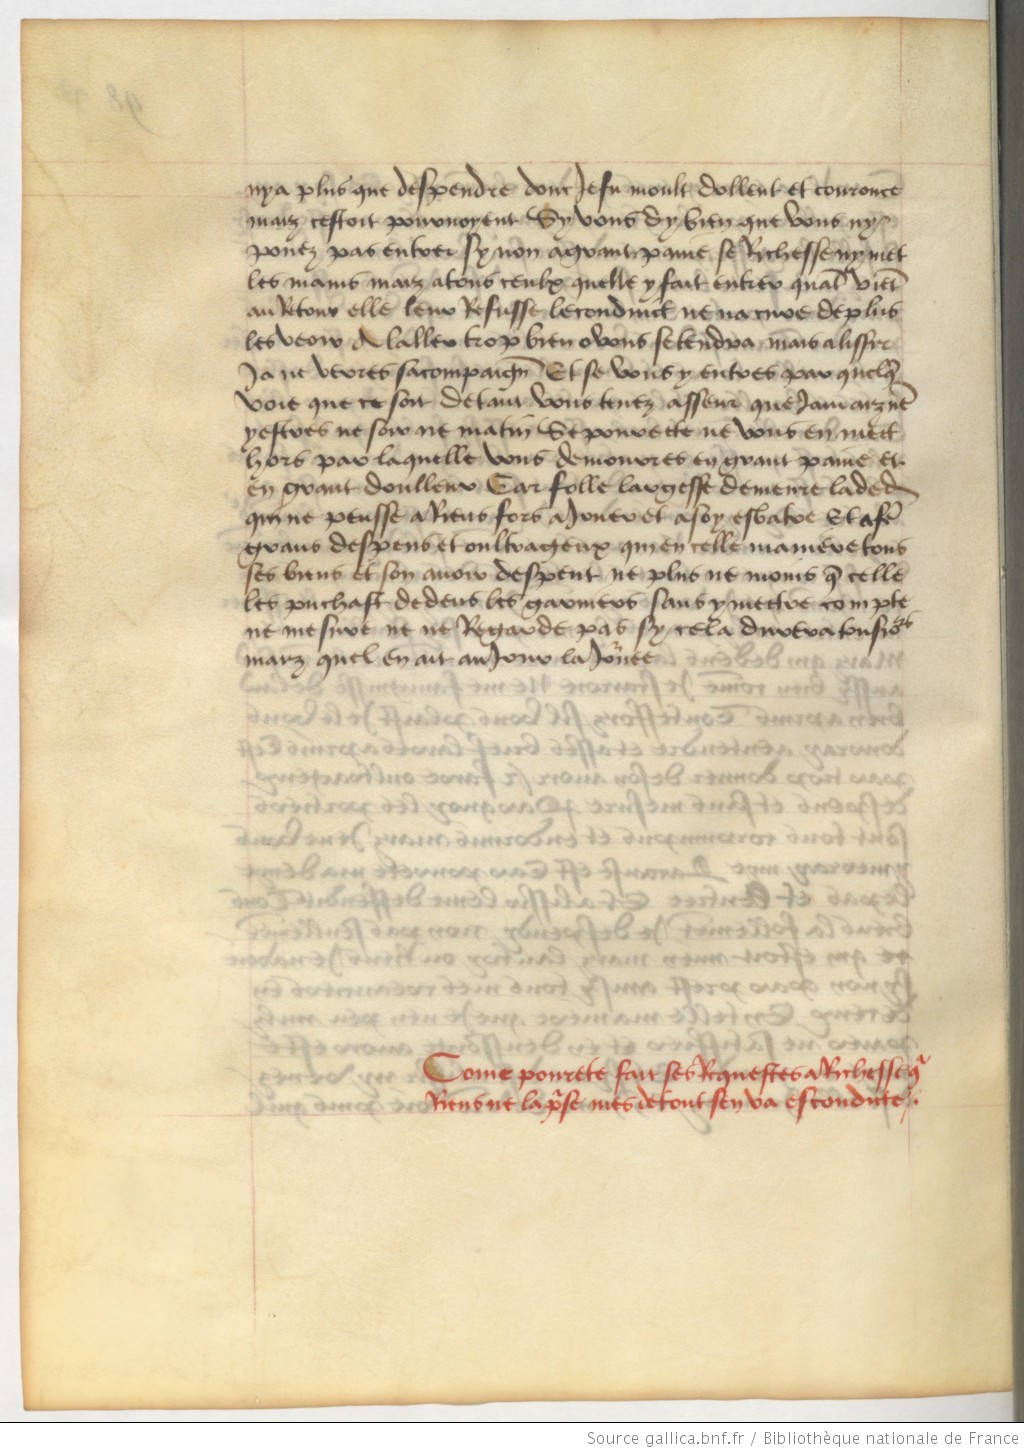 nya plus que despendre donc Je fu moult dollent et couronce
maiz cestoit pourvoyent Sy vous dy bien que vous ny
pouez pas entrer sy non a grant paine se Richesse ny met
les mains maiz a tous ceulx quelle y fait entrer quāt viēt
au Retour elle leur Refusse le conduict ne na cure de plus
les veoir A laller trop bien o vous se tendra mais a lissir
Ja ne verres sa compaignē Et se vous y entres par quelq̄
voie que ce soit de tant vous tenez asseur que Jamaiz nē
ystres ne soir ne matin Se pourete ne vous en mect
hors par laquelle vous demoures en grant paine et
en grant doulleur Car folle largesse demeure laded
qui ne pensse a Riens fors a Jouer et a soy esbatre Et a fē
grans despens et oultrageux qui en celle maniere tous
ses biens et son auoir despent ne plus ne moins q̄ celle
les puchast dedens les garniers sans y mectre compte
ne mesure ne ne Regarde pas sy cela durera tousiors
maiz quel en ait au Jour la Jornee
Come pourete fait ses Requestes a Richesse q̄
Riens ne la p̄se mes de tout sen va escondicte
Source gallica.bnf.fr / Bibliothèque nationale de France